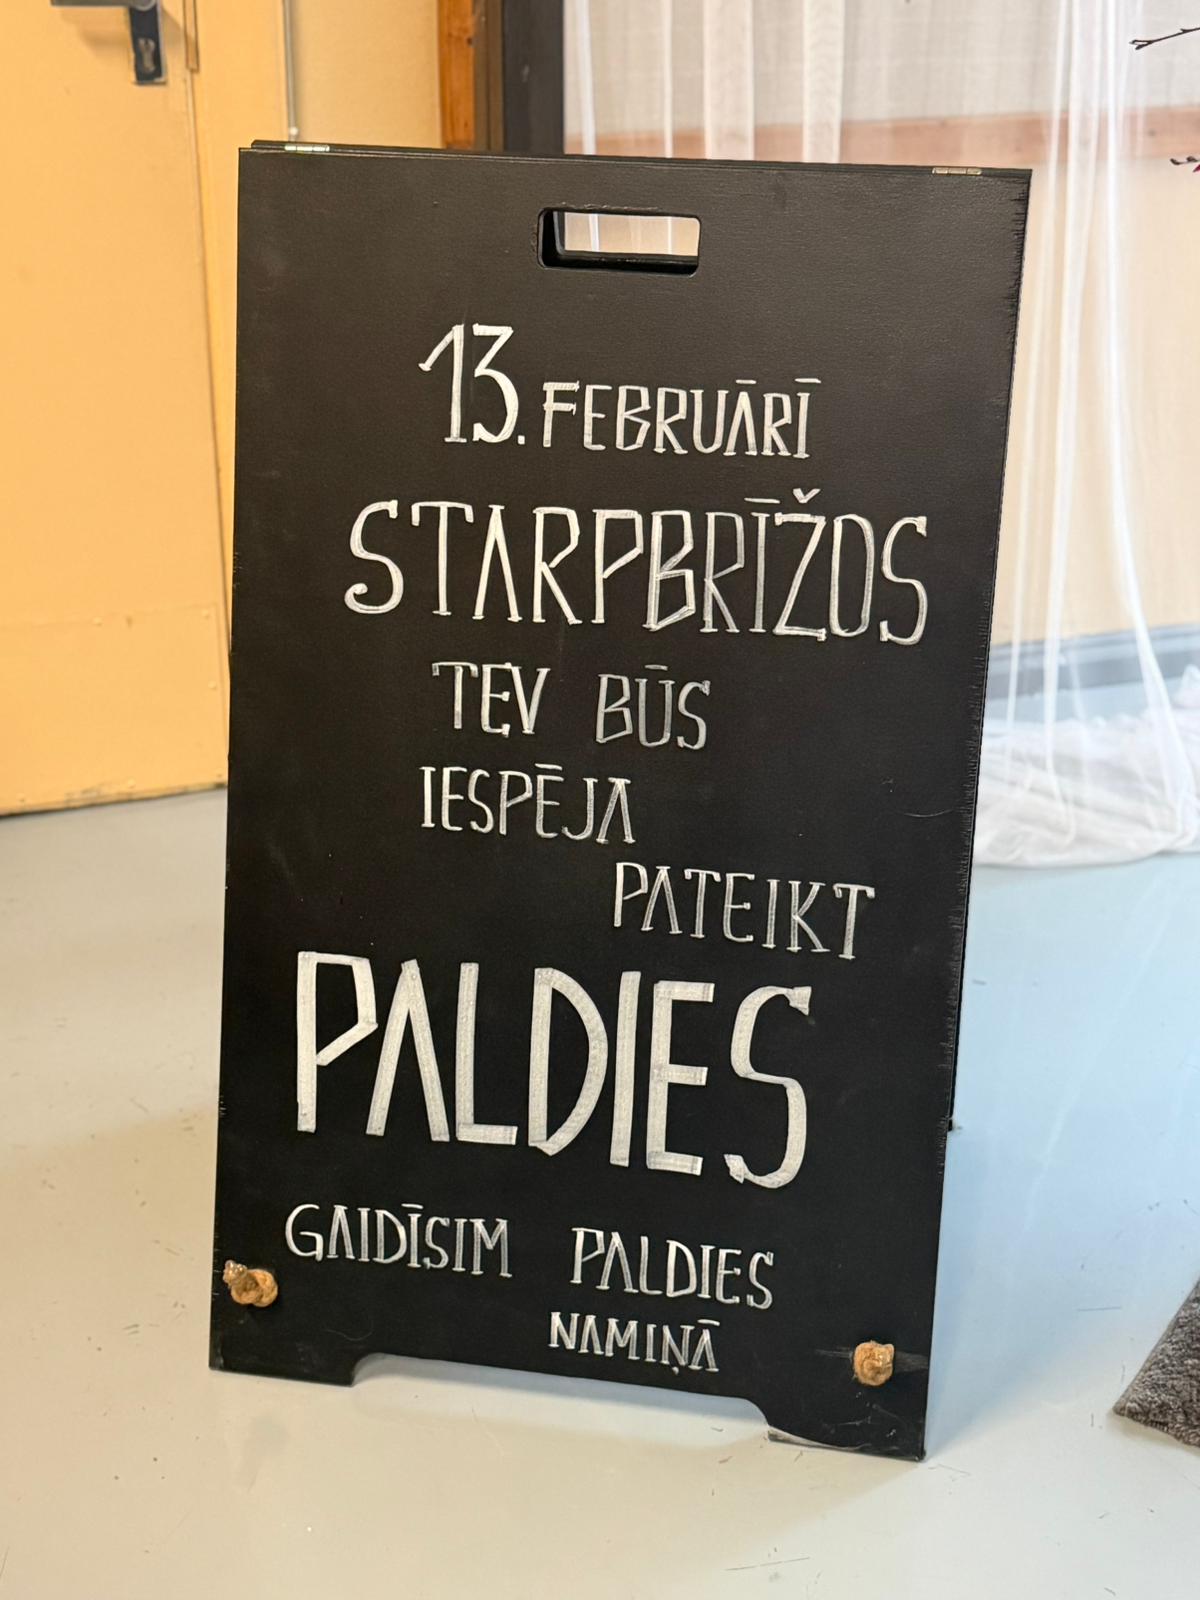 13. FEBRUĀRĪ
STARPBRĪŽOS
TEV BŪS
IESPĒJA
PATEIKT
PALDIES
GAIDĪSIM PALDIES
NAMIŅĀ